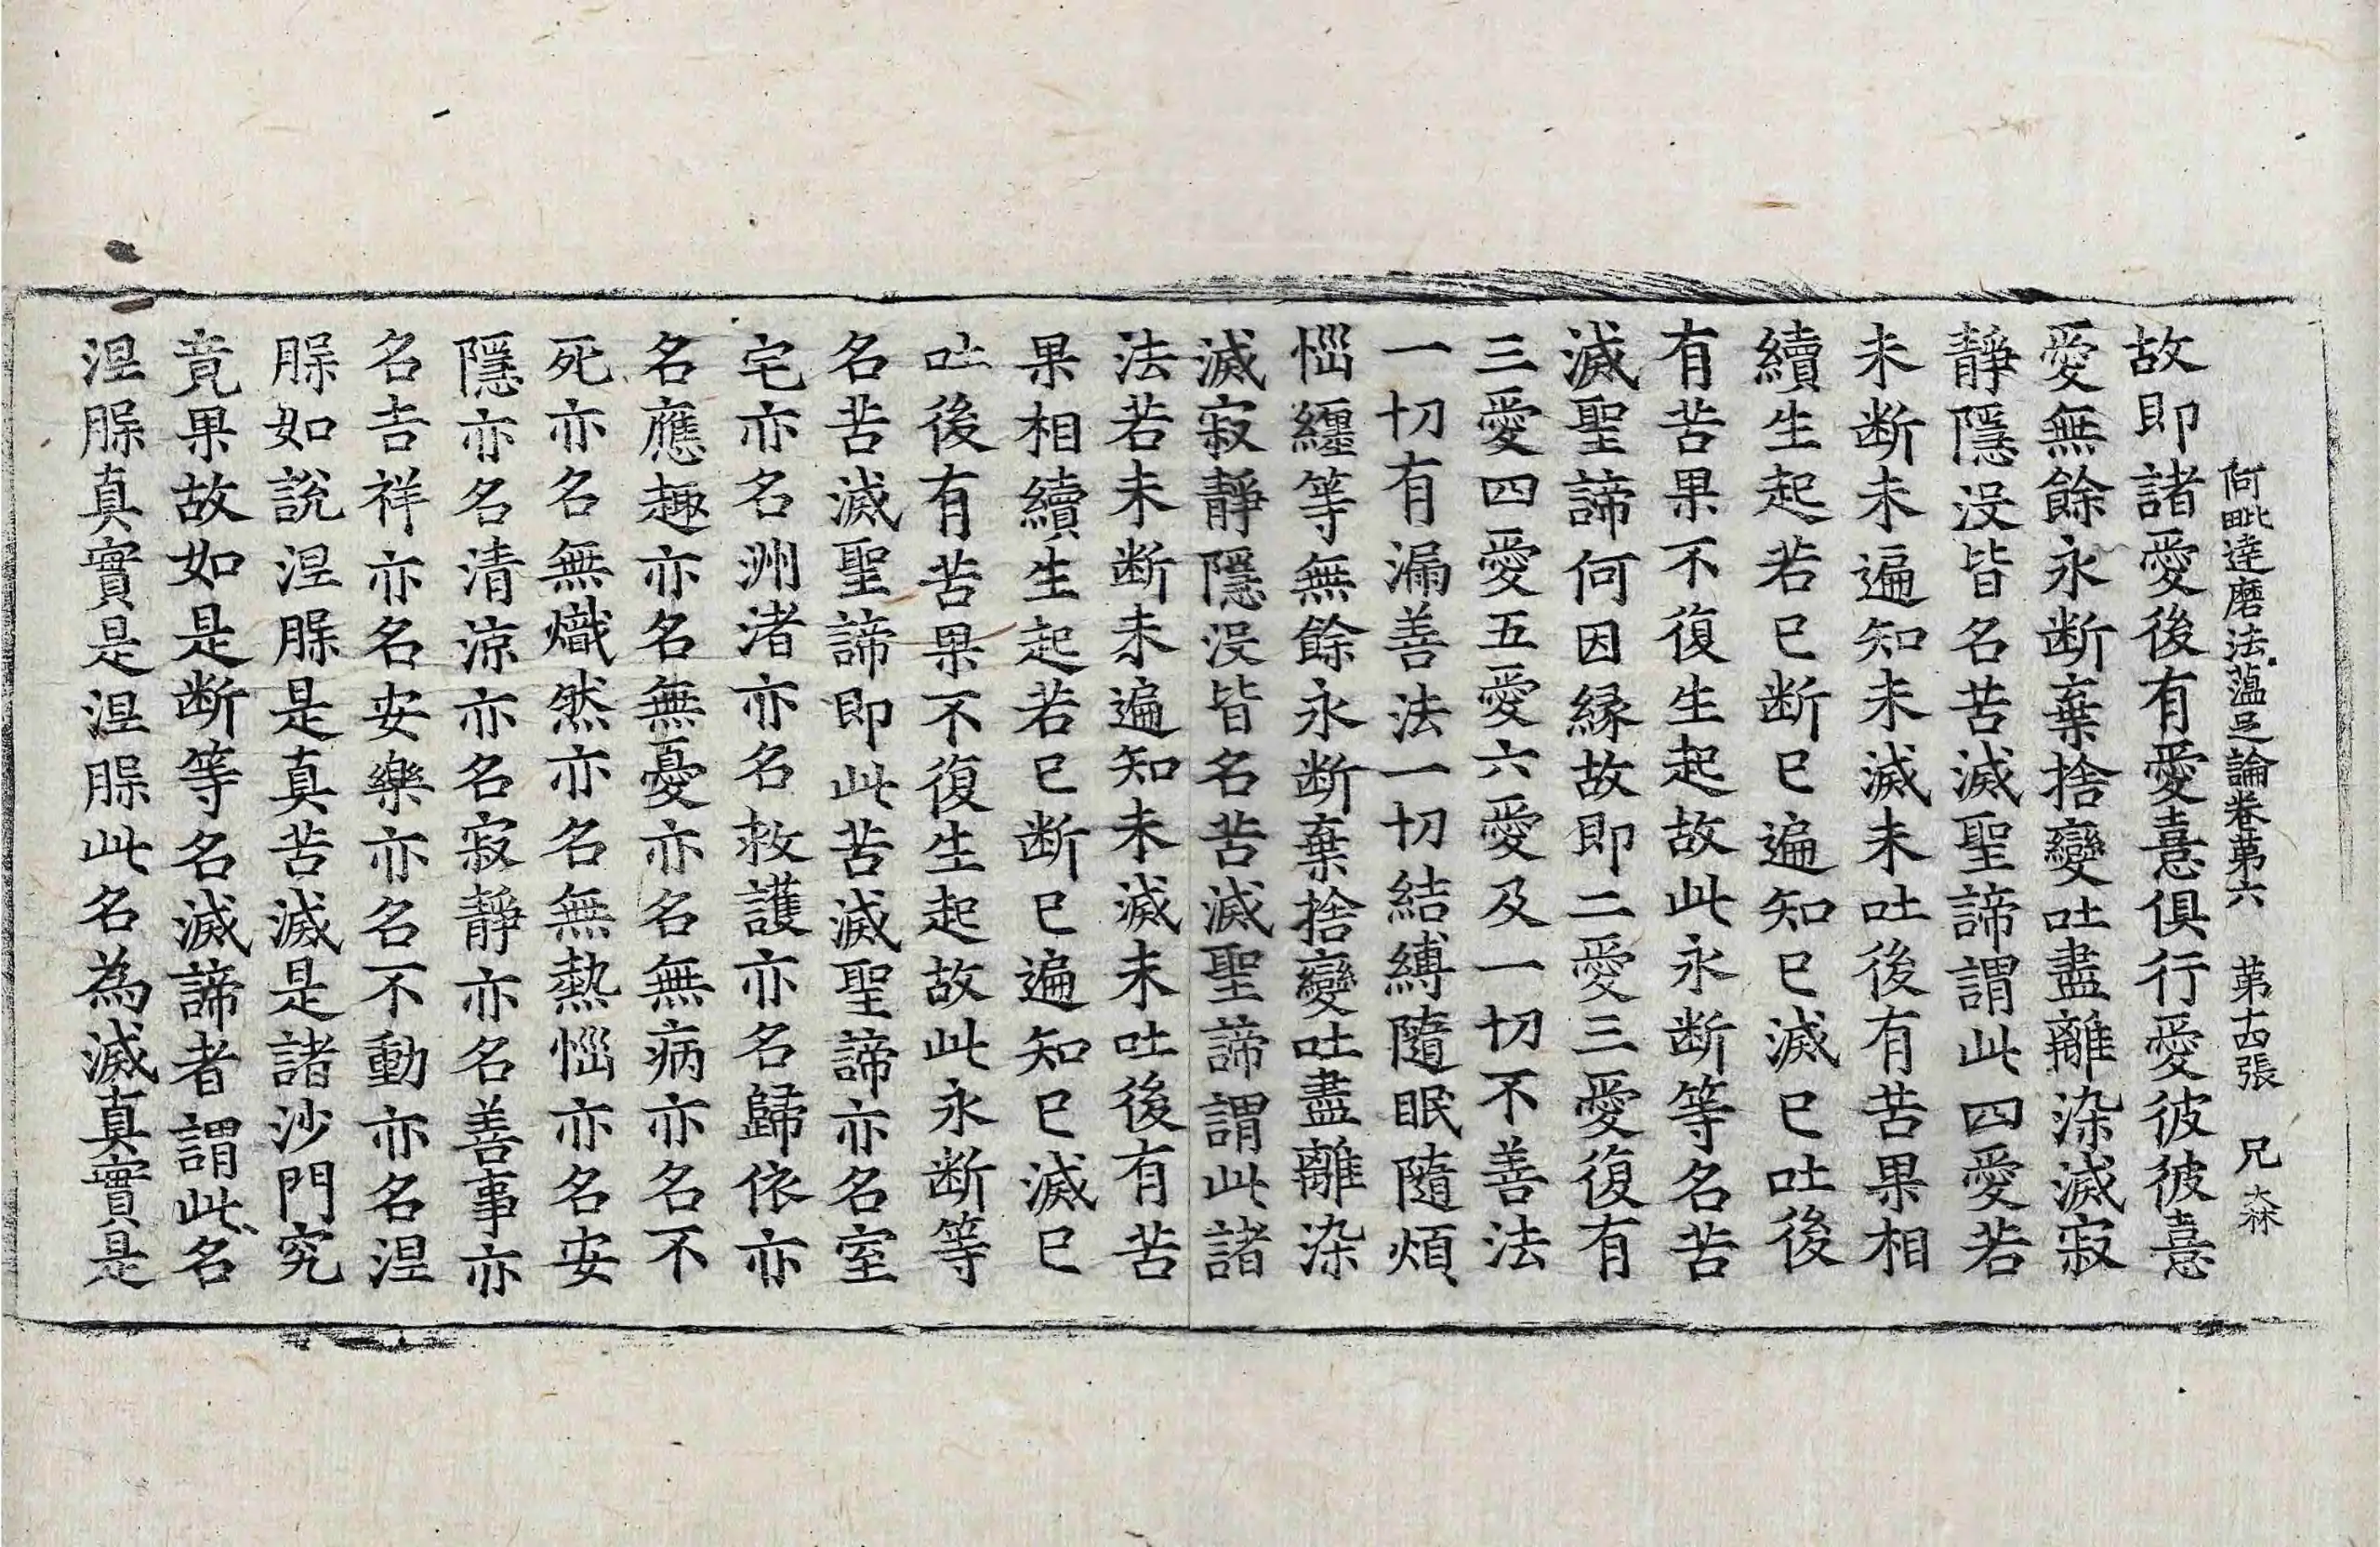 阿毗達磨法蕰足論卷第六 第十四張 兄
故即諸愛後有愛憙俱行愛彼彼憙
愛無餘永断棄捨變吐盡離染滅寂
靜隱没皆名苦滅聖諦謂此四愛若
未断未遍知未滅未吐後有苦果相
續生起若已断已遍知已滅已吐後
有苦果不復生起故此永断等名苦
滅聖諦何因縁故即二愛三愛復有
三愛四愛五愛六愛及一切不善法
一切有漏善法一切結縛隨眠隨煩
惱纏等無餘永断棄捨變吐盡離染
滅寂靜隱没皆名苦滅聖諦謂此諸
法若未断未遍知未滅未吐後有苦
果相續生起若已断已遍知已滅已
吐後有苦果不復生起故此永断等
名苦滅聖諦即此苦滅聖諦亦名室
宅亦名洲渚亦名救護亦名歸依亦
名應趣亦名無憂亦名無病亦名不
死亦名無熾然亦名無熱惱亦名安
隱亦名清涼亦名寂靜亦名善事亦
名吉祥亦名安樂亦名不動亦名涅
槃如說涅槃是真苦滅是諸沙門究
竟果故如是断等名滅諦者謂此名
涅槃真實是涅槃此名為滅真實是